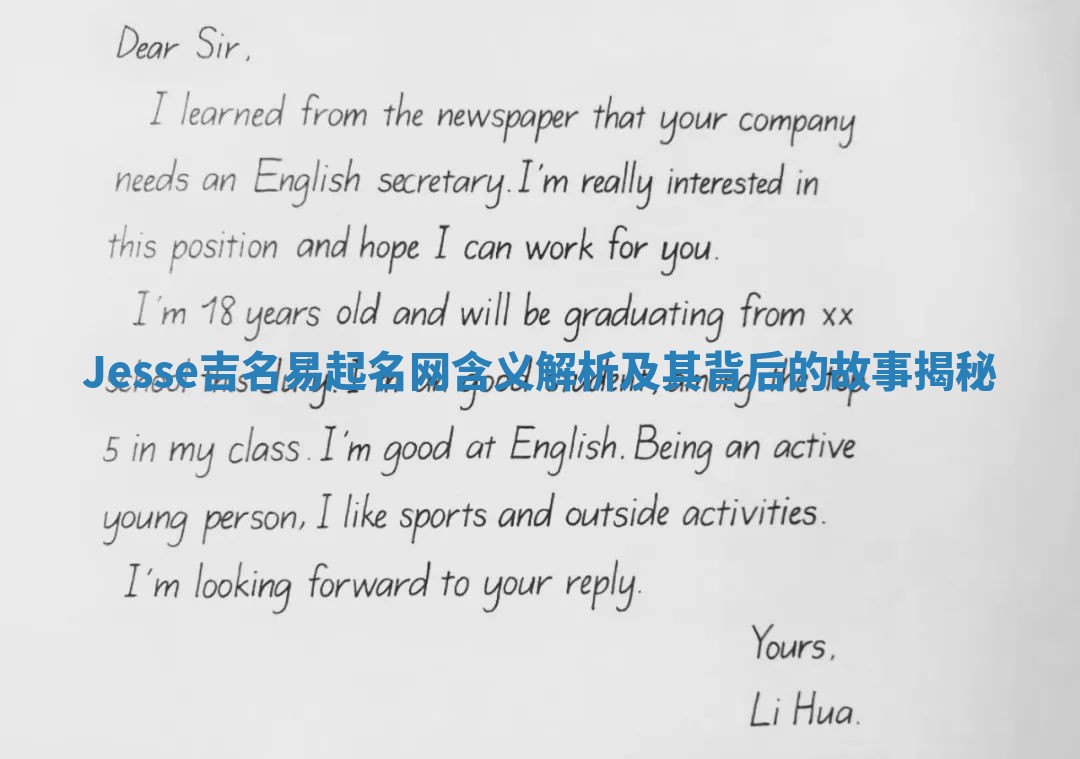 Dear Sir,
I learned from the newspaper that your company
needs an English secretary. I'm really interested in
this position and hope I can work for you.
I'm 18 years old and will be graduating from xx
Jesse吉名易起名网含义解析及其背后的故事揭秘
school this July. I'm a good student, among the top
5 in my class. I'm good at English. Being an active
young person, I like sports and outside activities.
I'm looking forward to your reply.
Yours,
Li Hua.